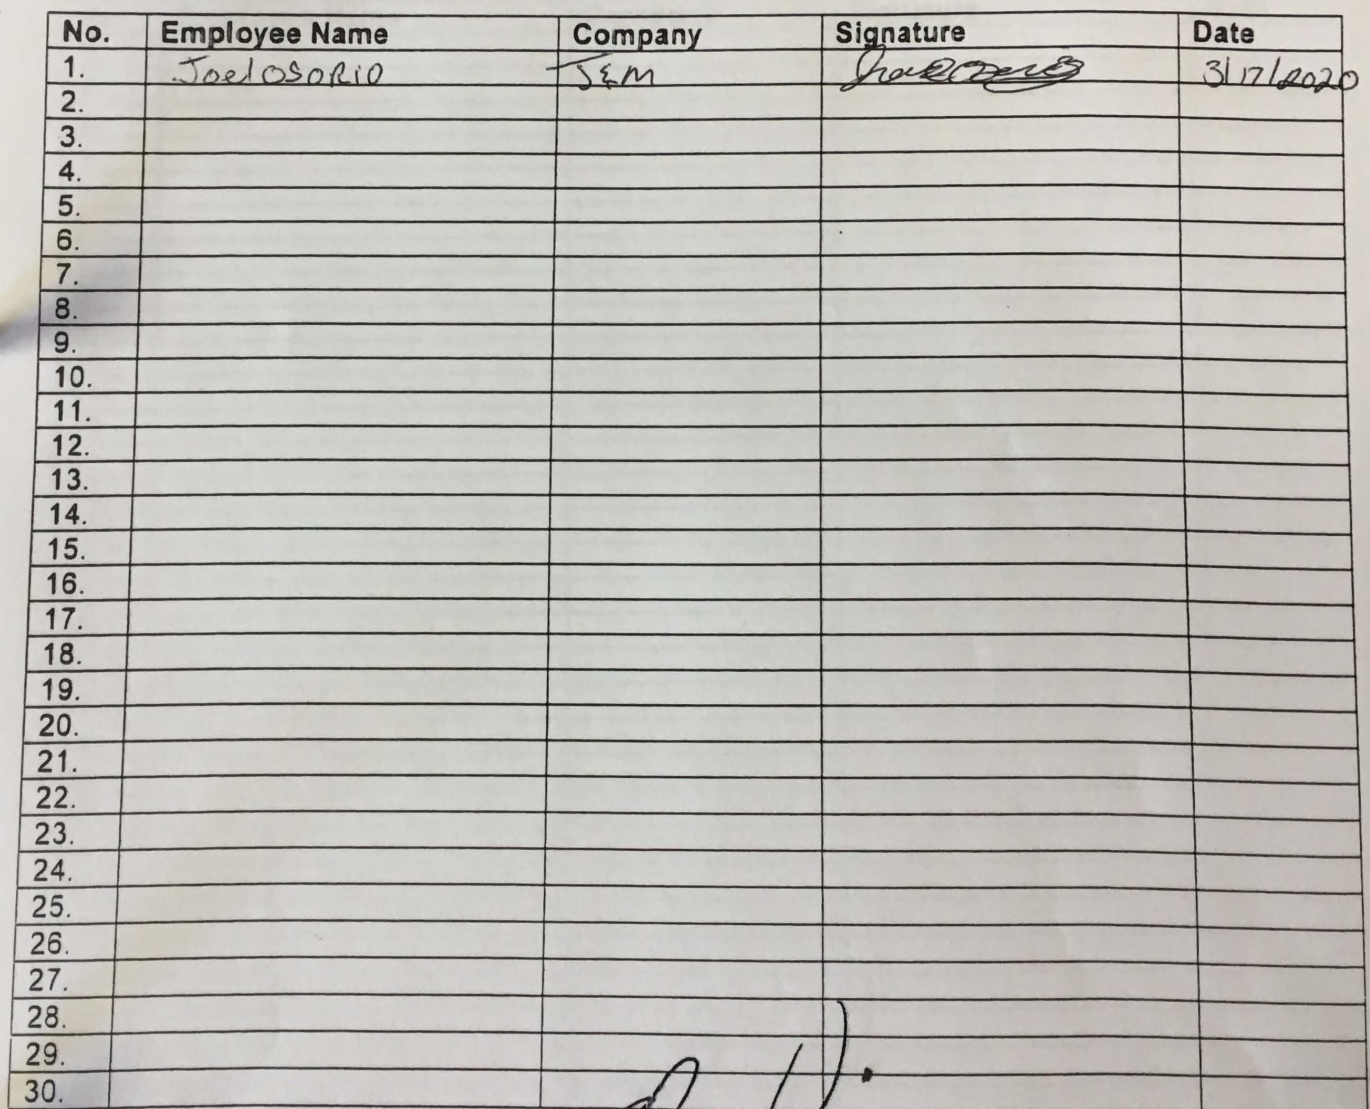 No. Employee Name Company Signature Date
1. Joel OSORIO J&M 3/17/2020
2.
3.
4.
5.
6.
7.
8.
9.
10.
11.
12.
13.
14.
15.
16.
17.
18.
19.
20.
21.
22.
23.
24.
25.
26.
27.
28.
29.
30.